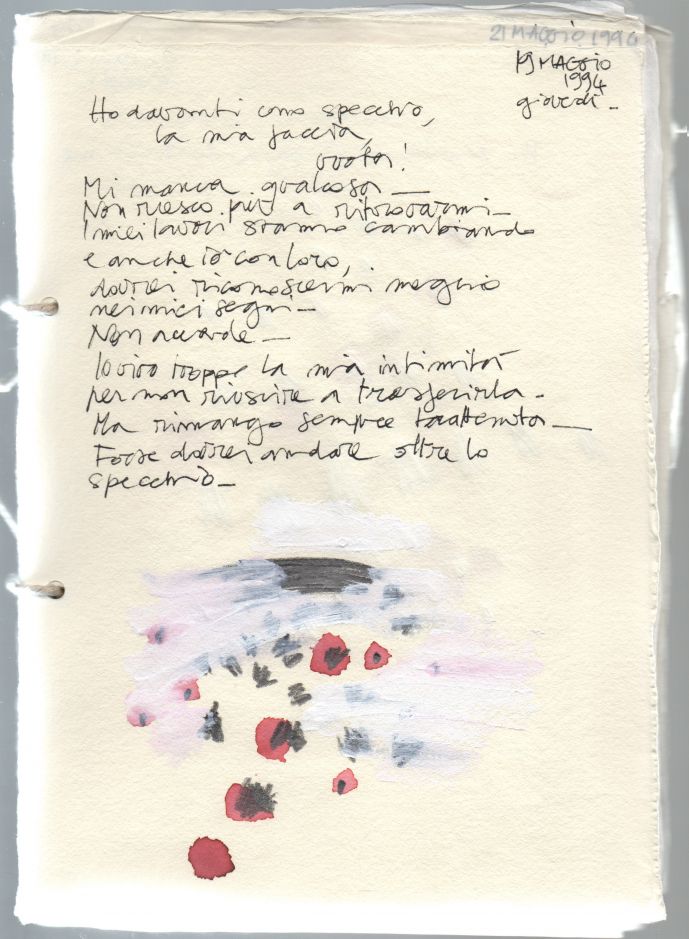 21 MAGGIO 1996
19 MAGGIO
1994
giovedì -
Ho davanti uno specchio,
la mia faccia,
vuota!
Mi manca qualcosa —
Non riesco più a ritrovarmi -
I miei lavori stanno cambiando
e anche io con loro,
dovrei riconoscermi meglio
nei miei segni -
Non accade -
Io vivo troppo la mia intimità
per non riuscire a trasferirla -
Ma rimango sempre trattenuta —
Forse dovrei andare oltre lo
specchio -